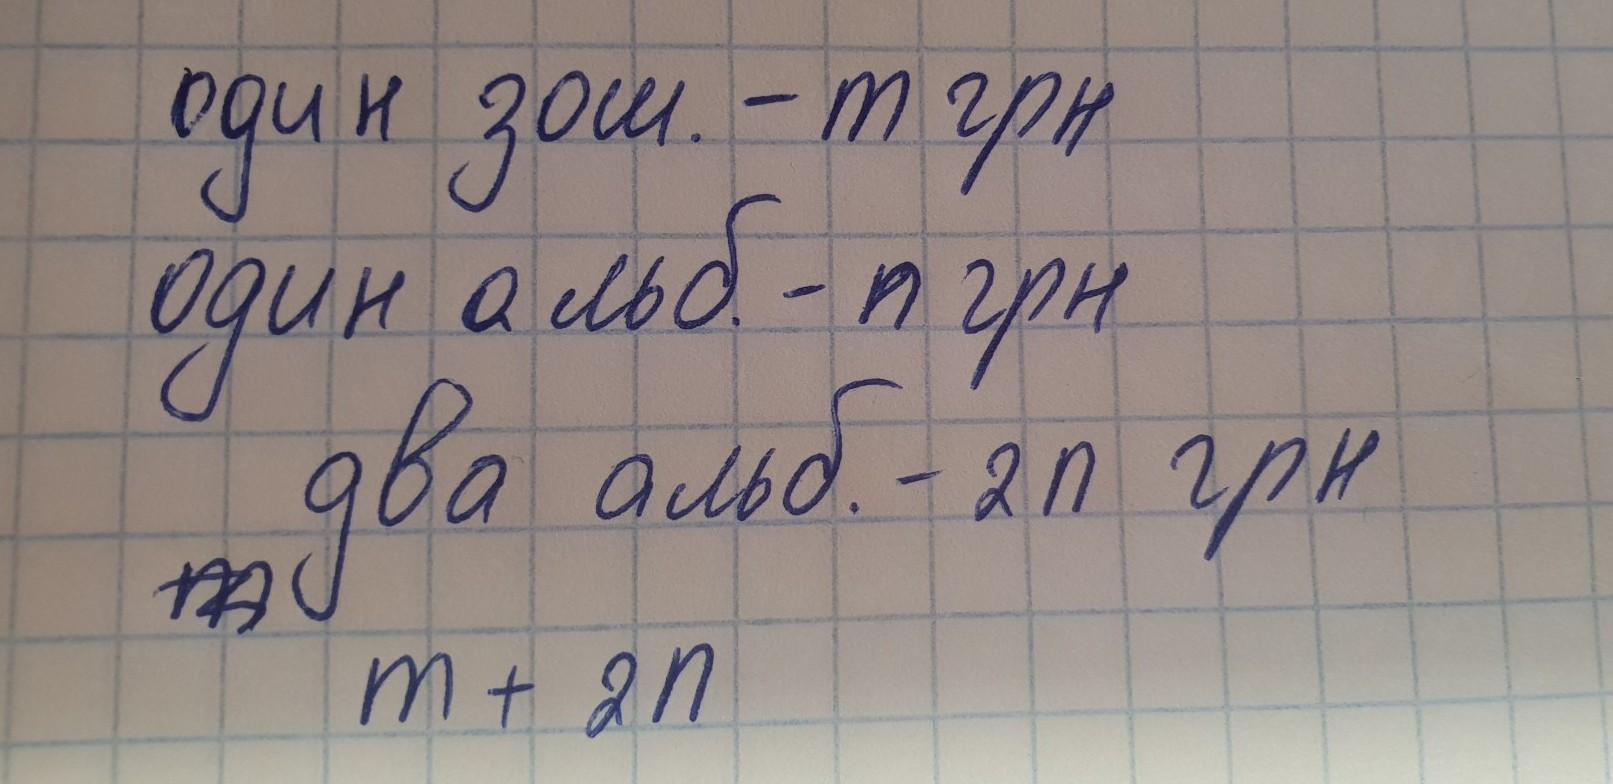 один зош. - m грн
один альб. - n грн
два альб. - 2n грн
m + 2n